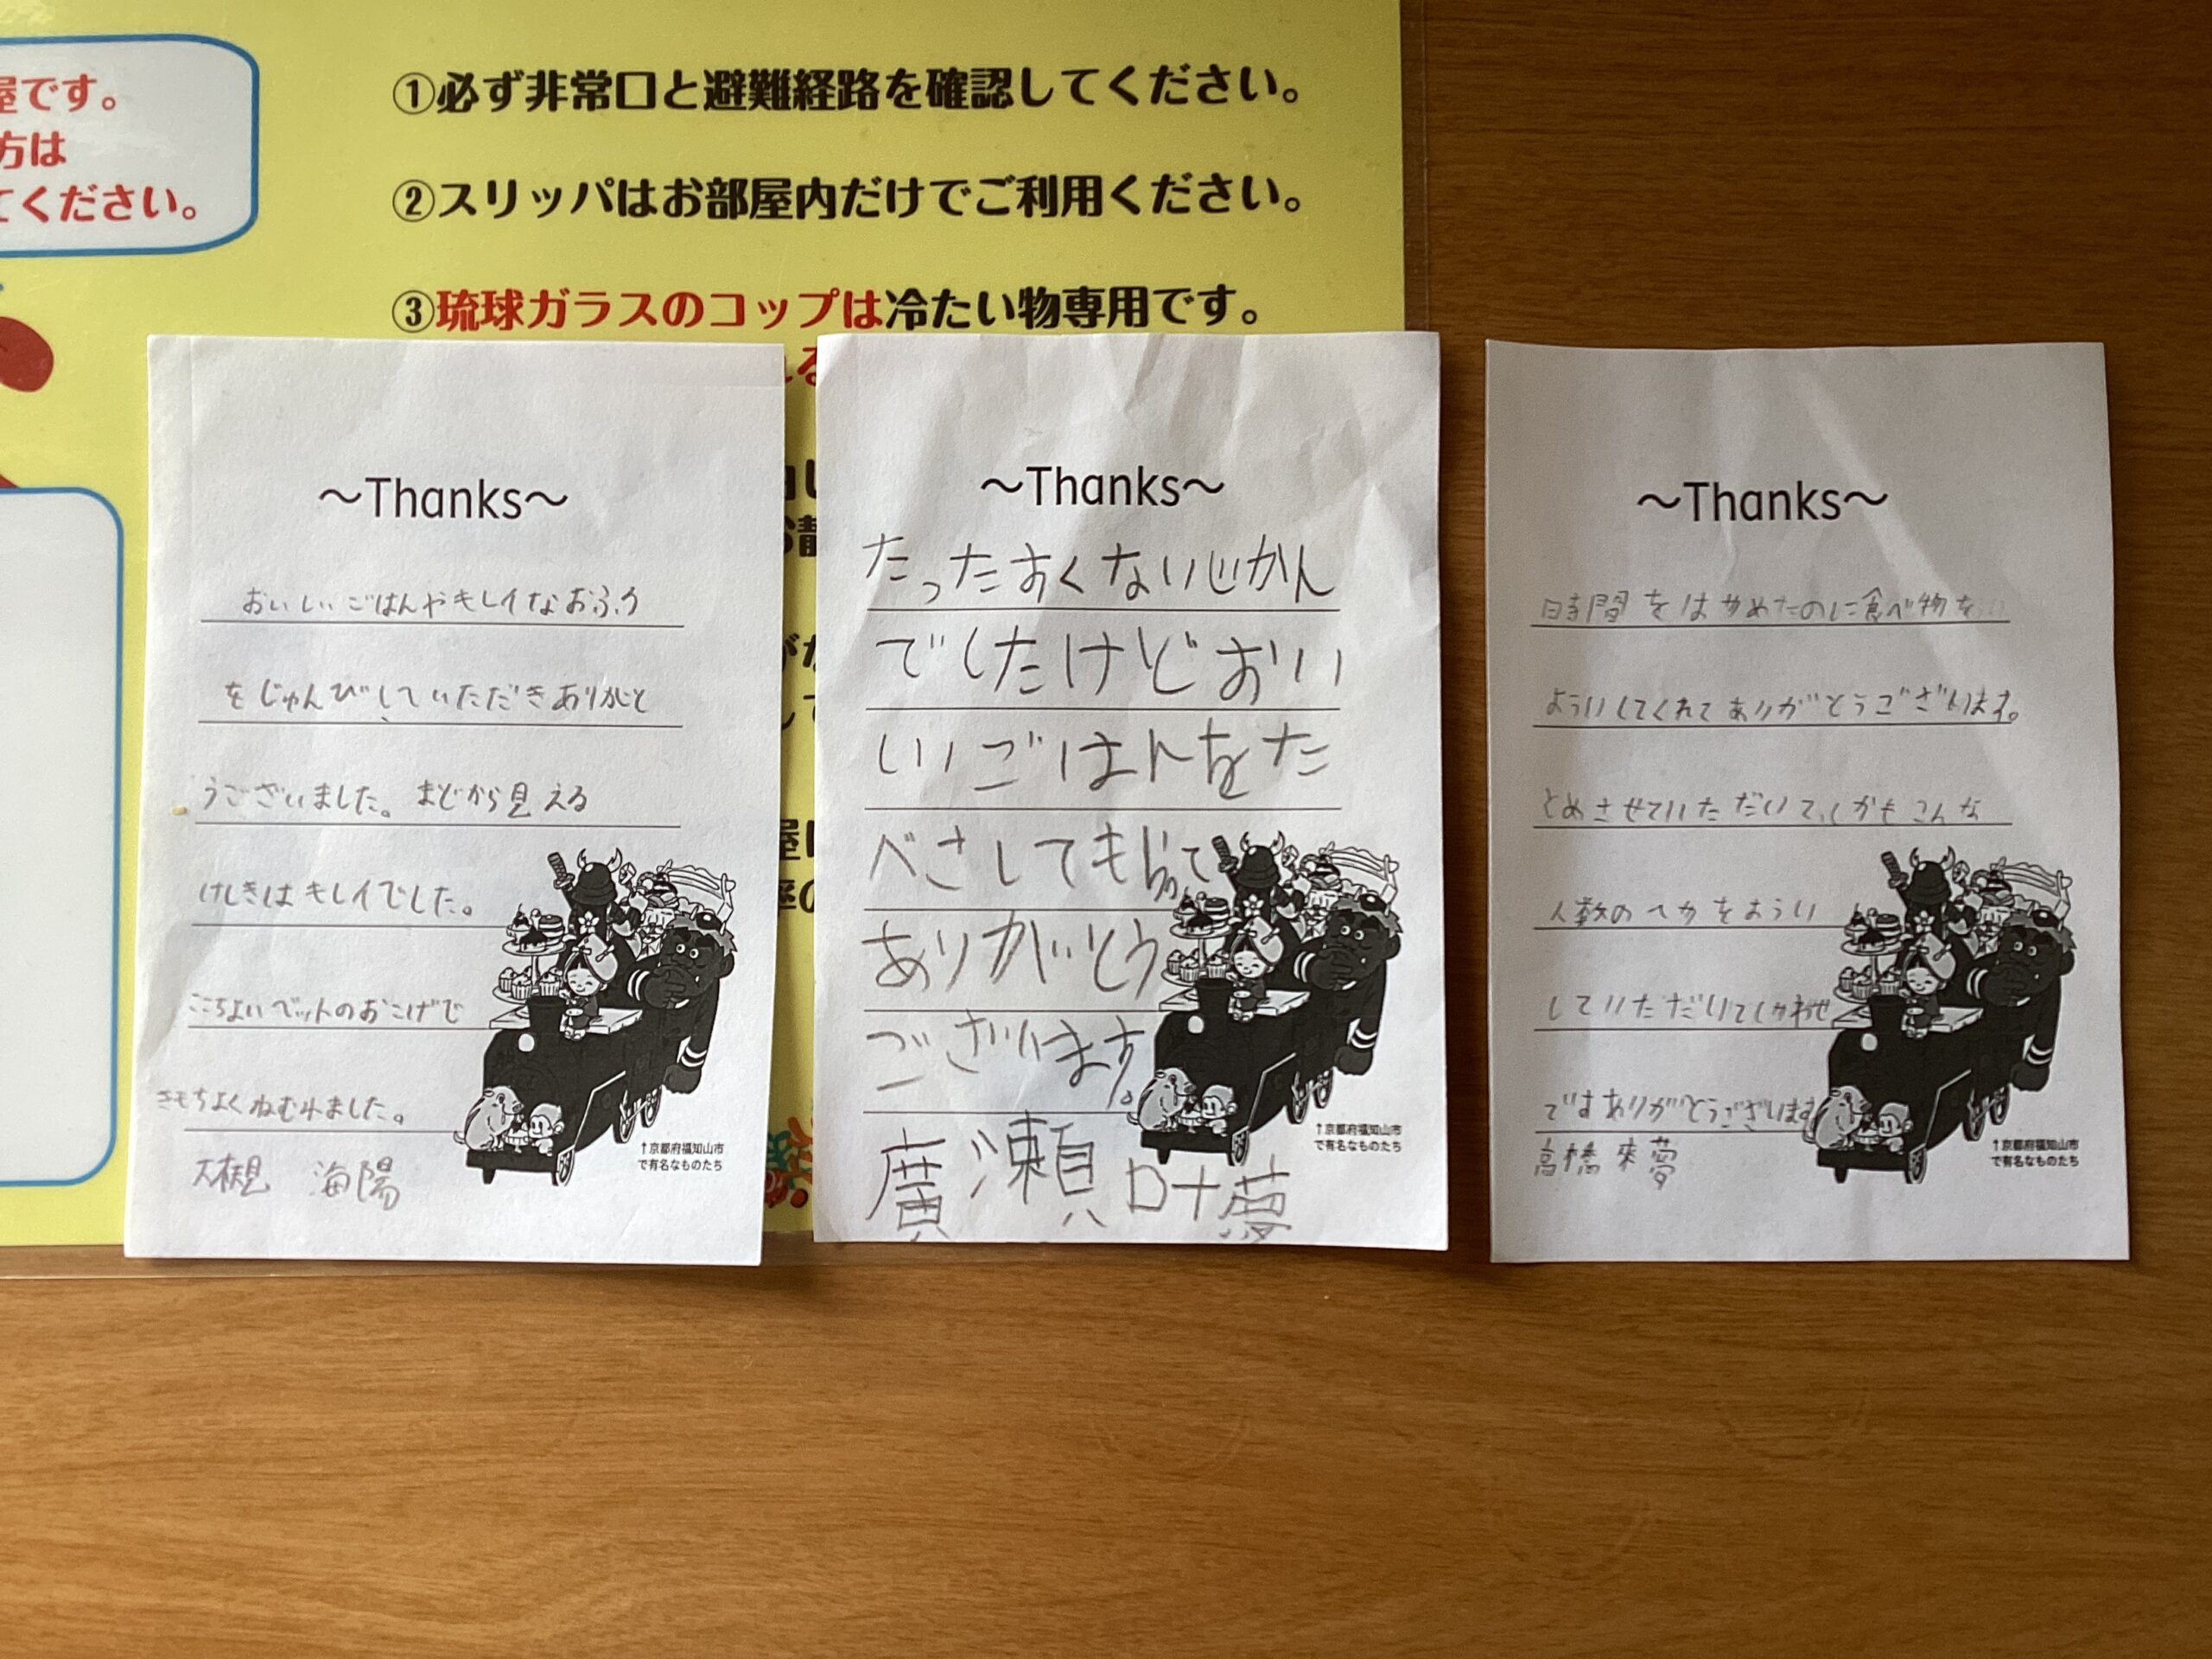 屋です。
方は
てください。
①必ず非常口と避難経路を確認してください。
②スリッパはお部屋内だけでご利用ください。
③琉球ガラスのコップは冷たい物専用です。
～Thanks～
おいしいごはんやキレイなおふろ
をじゅんびしていただきありがと
うございました。まどから見える
けしきはキレイでした。
ここちよいベットのおこげで
きもちよくねむれました。
大槻 海陽
↑京都府福知山市
で有名なものたち
～Thanks～
たったすくないじかん
でしたけどおい
いいごはんをた
べさしてもらって
ありがとう
ございます。
廣瀬叶夢
↑京都府福知山市
で有名なものたち
～Thanks～
時間をはやめたのに食べ物を
よういしてくれてありがとうございます。
とめさせていただいてしかもこんな
人数のへやをようい
していただいてしあわせ
ではありがとうございます
高橋来夢
↑京都府福知山市
で有名なものたち